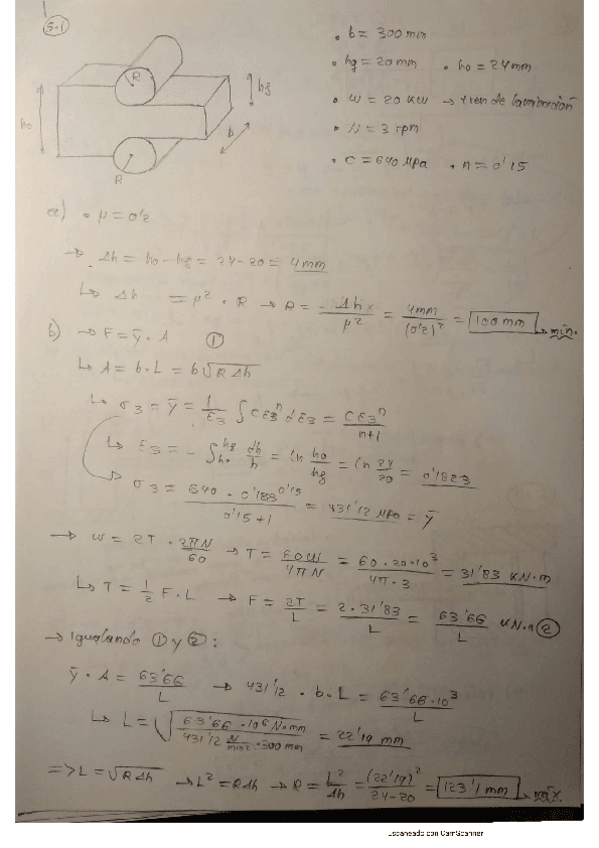 5.1
• b = 300 mm
• hg = 20 mm • ho = 24 mm
• W = 20 KW → tren de laminación
• N = 3 rpm
• C = 640 MPa • n = 0'15
R
ho
hg
b
R
a) • μ = 0'2
→ Δh = ho - hg = 24 - 20 = 4 mm
↳ Δh = μ² · R → R = Δh / μ² = 4mm / (0'2)² = 100 mm → mín.
b) → F = ȳ · A ①
↳ A = b · L = b√RΔh
↳ σ3 = ȳ = 1/ε3 ∫ Cε3ⁿ dε3 = Cε3ⁿ / n+1
↳ ε3 = - ∫ho^hg dh/h = ln ho/hg = ln 24/20 = 0'1823
σ3 = 640 · 0'183^0'15 / 0'15+1 = 431'12 MPa = ȳ
→ W = 2T · 2πN/60 → T = 60W / 4πN = 60·20·10³ / 4π·3 = 31'83 KN·m
↳ T = 1/2 F · L → F = 2T/L = 2·31'83 / L = 63'66 / L KN·m ②
→ Igualando ① y ②:
ȳ · A = 63'66 / L → 431'12 · b · L = 63'66·10³ / L
↳ L = √(63'66 · 10⁶ N·mm / 431'12 N/mm² · 300 mm) = 22'19 mm
=> L = √RΔh → L² = RΔh → R = L²/Δh = (22'19)² / 24-20 = 123'1 mm → máx.
Escaneado con CamScanner